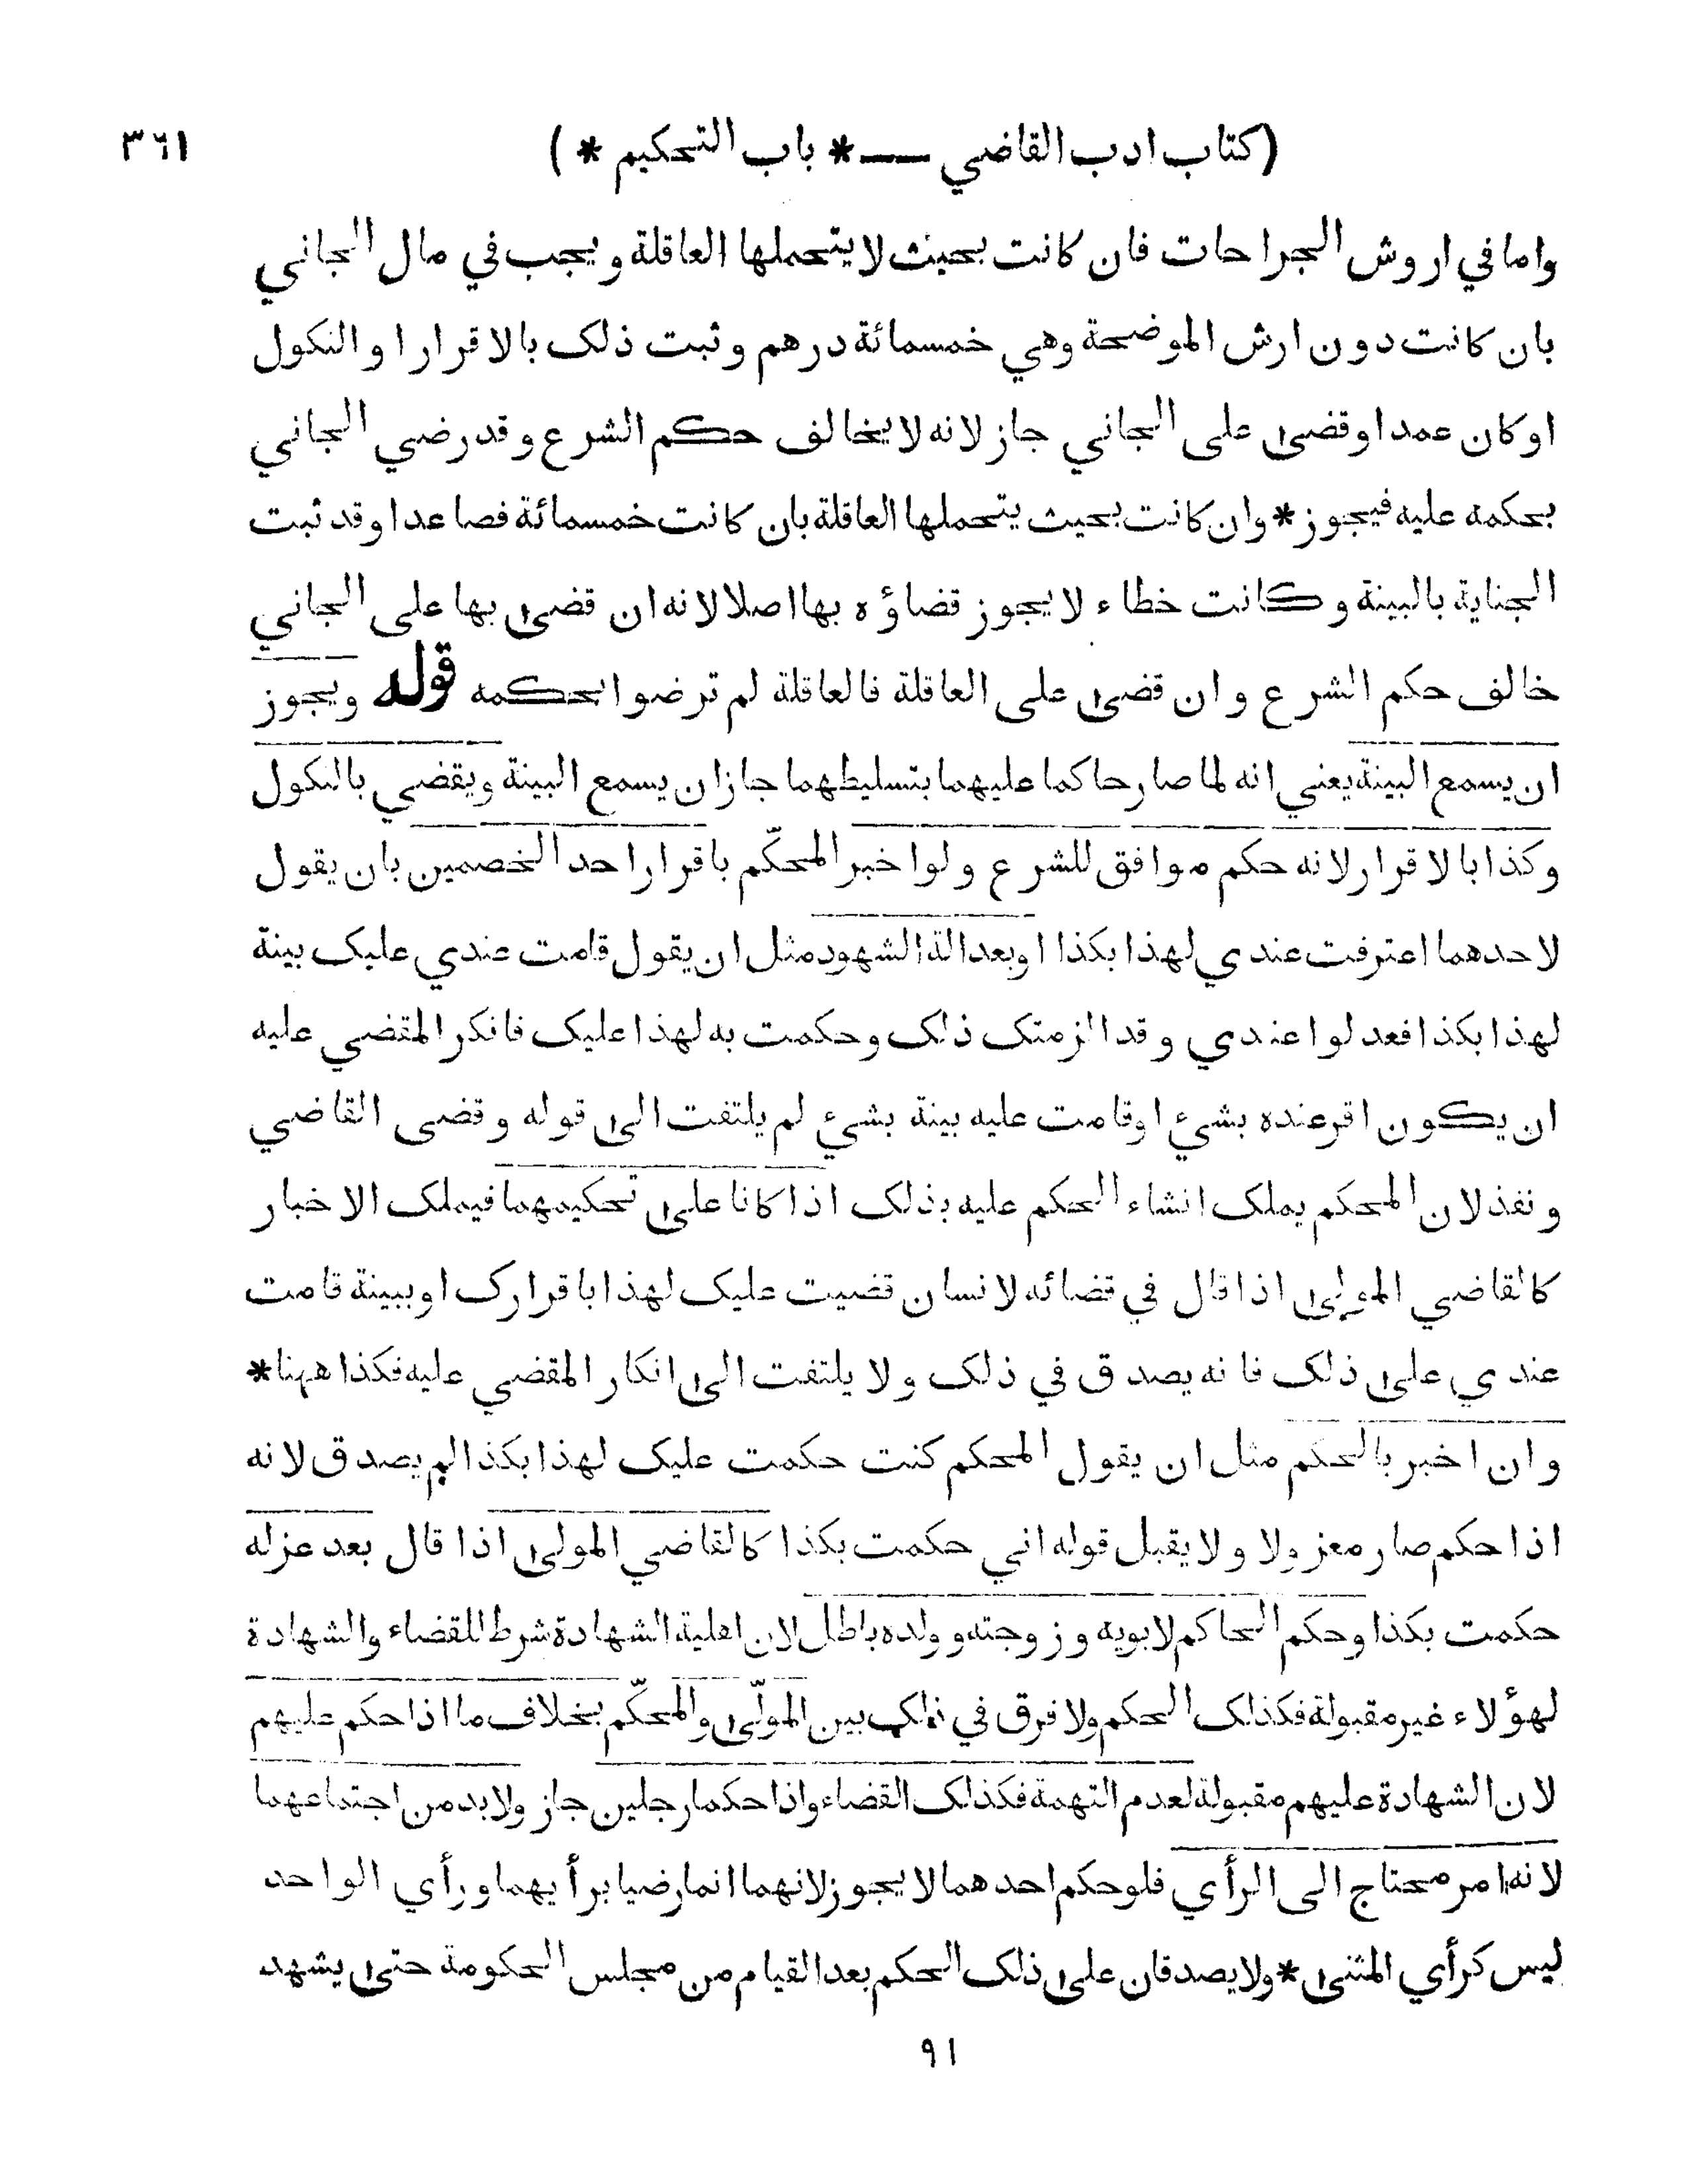 (كتاب ادب القاضي —* باب التحكيم *) ٣٦١
واما في اروش الجراحات فان كانت بحيث لا يتحملها العاقلة ويجب في مال الجاني
بان كانت دون ارش الموضحة وهي خمسمائة درهم وثبت ذلك بالاقرار او النكول
او كان عمدا وقضى على الجاني جاز لانه لا يخالف حكم الشرع وقد رضي الجاني
بحكمه عليه فيجوز * وان كانت بحيث يتحملها العاقلة بان كانت خمسمائة فصاعدا وقد ثبت
الجناية بالبينة وكانت خطاء لا يجوز قضاؤه بها اصلا لانه ان قضى بها على الجاني
خالف حكم الشرع وان قضى على العاقلة فالعاقلة لم ترضوا بحكمه قوله ويجوز
ان يسمع البينة يعني انه لما صار حاكما عليهما بتسليطهما جاز ان يسمع البينة ويقضي بالنكول
وكذا بالاقرار لانه حكم موافق للشرع ولو اخبر المحكّم باقرار احد الخصمين بان يقول
لاحدهما اعترفت عندي لهذا بكذا او بعدالة الشهود مثل ان يقول قامت عندي عليك بينة
لهذا بكذا فعدلوا عندي وقد الزمتك ذلك وحكمت به لهذا عليك فانكر المقضي عليه
ان يكون اقر عنده بشيء او قامت عليه بينة بشيء لم يلتفت الى قوله وقضى القاضي
ونفذ لان المحكم يملك انشاء الحكم عليه بذلك اذا كانا على تحكيمهما فيملك الاخبار
كالقاضي المولى اذا قال في قضائه لانسان قضيت عليك لهذا باقرارك او ببينة قامت
عندي على ذلك فانه يصدق في ذلك ولا يلتفت الى انكار المقضي عليه فكذا ههنا *
وان اخبر بالحكم مثل ان يقول المحكم كنت حكمت عليك لهذا بكذا لم يصدق لانه
اذا حكم صار معزولا ولا يقبل قوله اني حكمت بكذا كالقاضي المولى اذا قال بعد عزله
حكمت بكذا وحكم الحاكم لابويه وزوجته وولده باطل لان اهلية الشهادة شرط للقضاء والشهادة
لهؤلاء غير مقبولة فكذلك الحكم ولا فرق في ذلك بين المولّى والمحكّم بخلاف ما اذا حكم عليهم
لان الشهادة عليهم مقبولة لعدم التهمة فكذلك القضاء واذا حكما رجلين جاز ولا بد من اجتماعهما
لانه امر محتاج الى الرأي فلو حكم احدهما لا يجوز لانهما انما رضيا برأيهما ورأي الواحد
ليس كرأي المثنى * ولا يصدقان على ذلك الحكم بعد القيام من مجلس الحكومة حتى يشهد
٩١